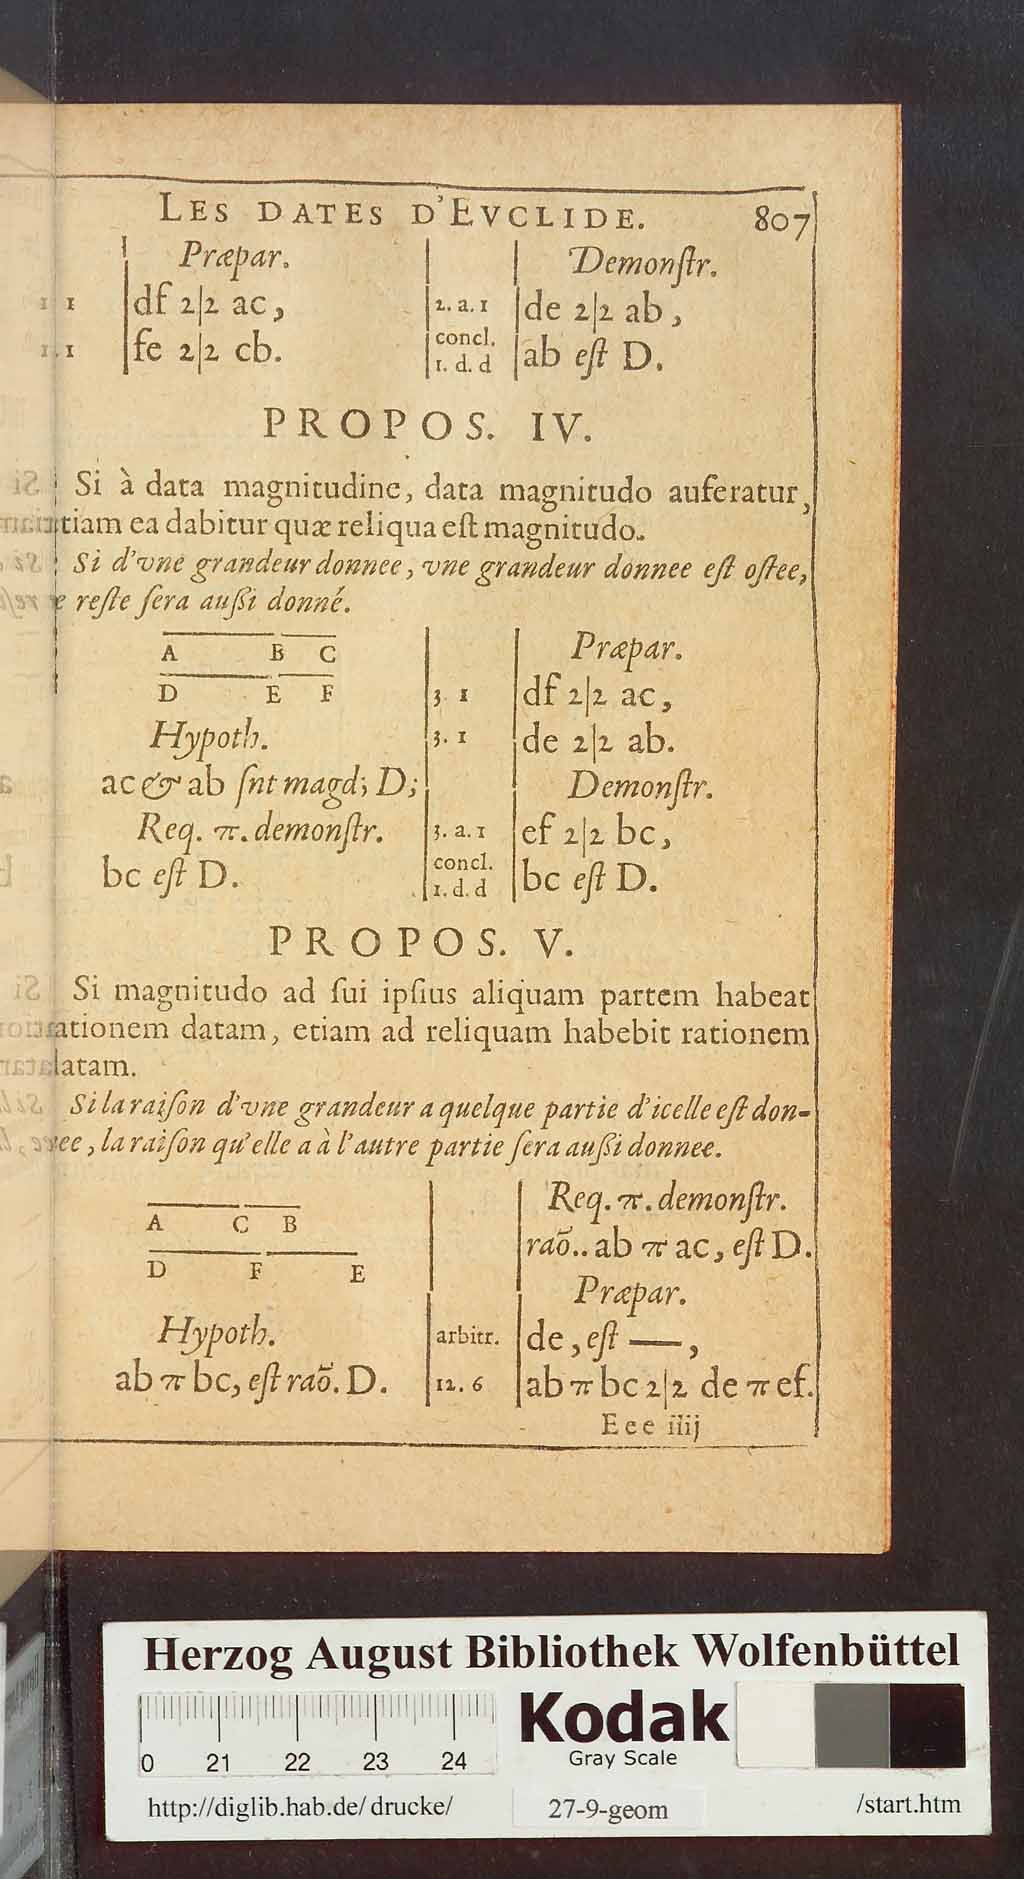 LES DATES D'EVCLIDE. 807
Præpar.
1 1 df 2|2 ac,
1.1 fe 2|2 cb.
Demonſtr.
2. a. 1 de 2|2 ab,
concl.
1. d. d ab eſt D.
PROPOS. IV.
Si à data magnitudine, data magnitudo auferatur,
etiam ea dabitur quæ reliqua eſt magnitudo.
Si d'vne grandeur donnee, vne grandeur donnee eſt oſtee,
le reſte ſera auſſi donné.
A B C
D E F
Hypoth.
ac & ab ſnt magd; D;
Req. π. demonſtr.
bc eſt D.
Præpar.
3. 1 df 2|2 ac,
3. 1 de 2|2 ab.
Demonſtr.
3. a. 1 ef 2|2 bc,
concl.
1. d. d bc eſt D.
PROPOS. V.
Si magnitudo ad ſui ipſius aliquam partem habeat
rationem datam, etiam ad reliquam habebit rationem
datam.
Si la raiſon d'vne grandeur a quelque partie d'icelle eſt don-
nee, la raiſon qu'elle a à l'autre partie ſera auſſi donnee.
A C B
D F E
Hypoth.
ab π bc, eſt raõ. D.
Req. π. demonſtr.
raõ.. ab π ac, eſt D.
Præpar.
arbitr. de, eſt —,
12. 6 ab π bc 2|2 de π ef.
Eee iiij
Herzog August Bibliothek Wolfenbüttel
0 21 22 23 24
Kodak
Gray Scale
http://diglib.hab.de/drucke/ 27-9-geom /start.htm